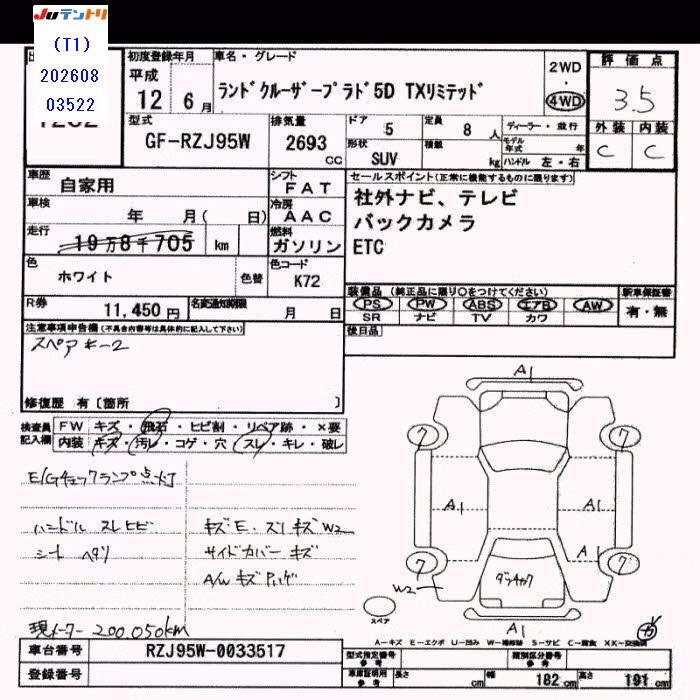 JUテントリ
(T1)
202608
03522
初度登録年月
平成
12年 6月
車名・グレード
ランドクルーザープラド5D TXリミテッド
2WD
・
4WD
評価点
3.5
外装 内装
C C
型式
GF-RZJ95W
排気量
2693
CC
ドア
5
定員
8 人
形状
SUV
積載
kg
ディーラー・並行
モデル年式 年
ハンドル 左・右
車歴
自家用
シフト
FAT
車検
年 月( 日)
冷房
AAC
走行
19万8千705 km
燃料
ガソリン
色
ホワイト
色替
色コード
K72
R券
11,450円
名変通知期限
月 日
セールスポイント(正常に機能するものに限ります)
社外ナビ、テレビ
バックカメラ
ETC
装備品 (純正品に限り○をつけてください)
新車保証書
PS PW ABS エアB AW
SR ナビ TV カワ
有・無
後日品
注意事項申告欄(不具合内容等は具体的に記入して下さい)
スペアキー2
修復歴 有〔箇所 〕
検査員記入欄
FW キズ・飛石・ヒビ割・リペア跡・×要
内装 キズ・汚レ・コゲ・穴・スレ・キレ・破レ
E/Gチェックランプ点灯
ハンドル スレ ヒビ
シート ヘタリ
キズE・スリキズW2
サイドカバー キズ
A/W キズ
現メーター 200,050km
A1
7 7
A1 A1
A1
7 7
W2
A1
スペア
A-キズ E-エクボ U-凹み W-補修跡 S-サビ C-腐食 XX-交換済
車台番号
RZJ95W-0033517
登録番号
型式指定番号
参考
類別区分番号
参考
車庫証明用
参考
長さ cm
幅 182 cm
高さ 191 cm